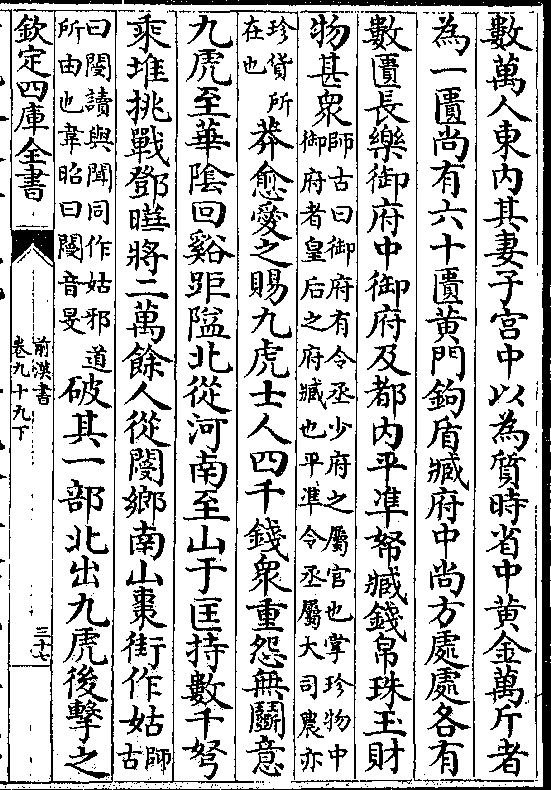 數萬人東内其妻子宫中以為質時省中黄金萬斤者
為一匱尚有六十匱黄門鉤盾臧府中尚方處處各有
數匱長樂御府中御府及都内平凖帑臧錢帛珠玉財
物甚衆師古曰御府有令丞少府之屬官也掌珍物中
御府者皇后之府臧也平凖令丞屬大司農亦
珍貨所
在也
莽愈愛之賜九虎士人四千錢衆重怨無鬭意
九虎至華隂回谿距隘北從河南至山于匡持數千弩
乘堆挑戰鄧曄將二萬餘人從閿鄉南山棗街作姑師
古
曰閿讀與聞同作姑邪道
所由也韋昭曰閿音旻
破其一部北出九虎後擊之
欽定四庫全書
前漢書
卷九十九下
三十七